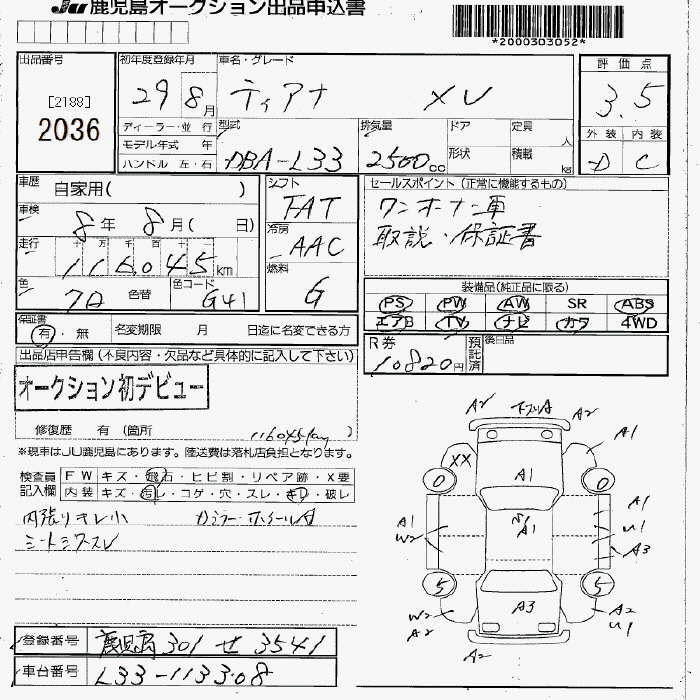 JU鹿児島オークション出品申込書
*2000303052*
出品番号
[2188]
2036
初年度登録年月
29 8月
車名・グレード
ティアナ XV
評価点
3.5
外装 内装
D C
ディーラー・並 行
モデル年式 年
ハンドル 左・右
型式
DBA-L33
排気量
2500cc
ドア
形状
定員
人
積載
kg
車歴
自家用( )
車検
8年 8月( 日)
走行
十 万 千 百 十 一
116045km
色
色替
色コード
G41
シフト
FAT
冷房
AAC
燃料
G
セールスポイント(正常に機能するもの)
ワンオーナー車
取説・保証書
装備品(純正品に限る)
PS PW AW SR ABS
エアB TV ナビ カワ 4WD
保証書
有・無
名変期限 月 日迄に名変できる方
R券
10820円
預託済
後日品
出品店申告欄(不良内容・欠品など具体的に記入して下さい)
オークション初デビュー
修復歴 有(箇所 )
116045km
※現車はJU鹿児島にあります。陸送費は落札店負担となります。
検査員記入欄
FW キズ・飛石・ヒビ割・リペア跡・X要
内装 キズ・汚レ・コゲ・穴・スレ・キレ・破レ
内張りキレ小
シートシワスレ
A2 A2
XX A1
0 A1 0
A1 W2
A1
A1 U1 A3
5 5
A3
W2 A2
A2 U1
A2
登録番号 鹿児島 301 せ 3541
車台番号 L33-113308